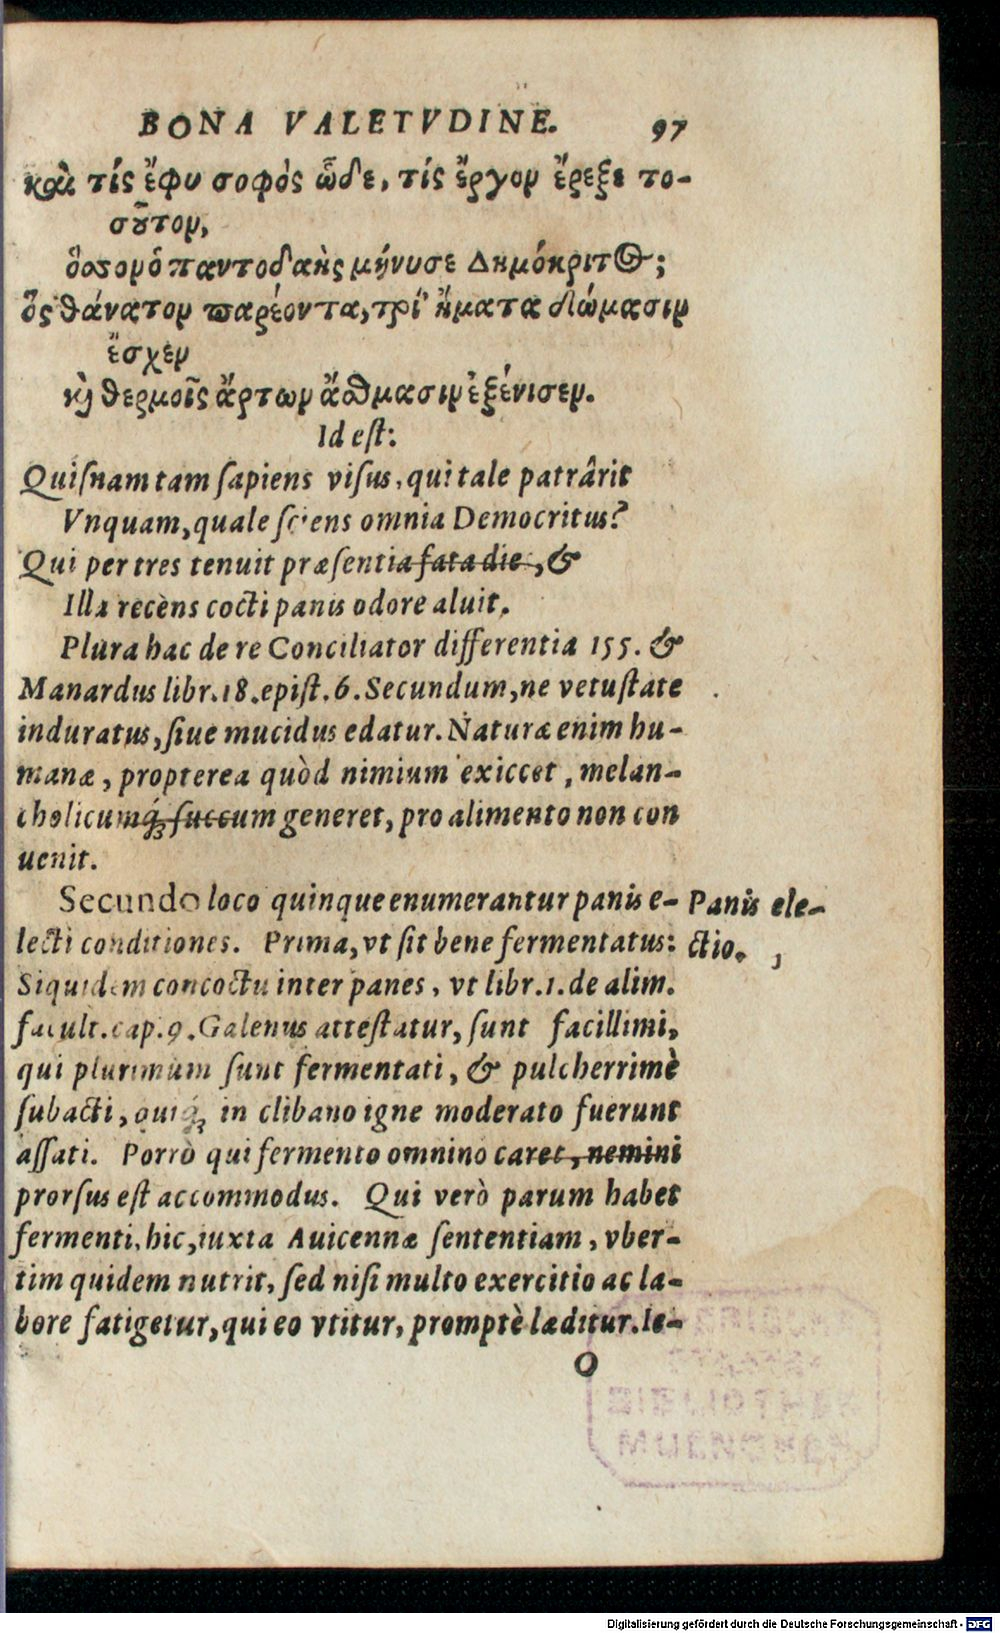 BONA VALETVDINE. 97
καὶ τίς ἔφυ σοφὸς ὧδε, τίς ἔργον ἔρεξε το-
σοῦτον,
ὅσσον ὁ παντοδαὴς μήνυσε Δημόκριτος;
ὃς θάνατον παρέοντα, τρί᾽ ἤματα δώμασιν
ἔσχεν
κὴ θερμοῖς ἄρτων ἄσθμασιν ἐξένισεν.
Id est:
Quiſnam tam ſapiens viſus, qui tale patrârit
Vnquam, quale ſciens omnia Democritus?
Qui per tres tenuit præſentia fata dies, &
Illa recèns cocti panis odore aluit.
Plura hac de re Conciliator differentia 155. &
Manardus libr. 18. epiſt. 6. Secundum, ne vetuſtate
induratus, ſiue mucidus edatur. Naturæ enim hu-
manæ, propterea quòd nimium exiccet, melan-
cholicumq́; ſuccum generet, pro alimento non con
uenit.
Secundo loco quinque enumerantur panis e-
lecti conditiones. Prima, vt ſit bene fermentatus:
Siquidem concoctu inter panes, vt libr. 1. de alim.
facult. cap. 9. Galenus atteſtatur, ſunt facillimi,
qui plurimum ſunt fermentati, & pulcherrimè
ſubacti, quiq́; in clibano igne moderato fuerunt
aſſati. Porrò qui fermento omnino caret, nemini
prorſus eſt accommodus. Qui verò parum habet
fermenti, hic, iuxta Auicennæ ſententiam, vber-
tim quidem nutrit, ſed niſi multo exercitio ac la-
bore fatigetur, qui eo vtitur, promptè læditur. le-
O
Panis ele-
ctio. 1
Digitalisierung gefördert durch die Deutsche Forschungsgemeinschaft - DFG